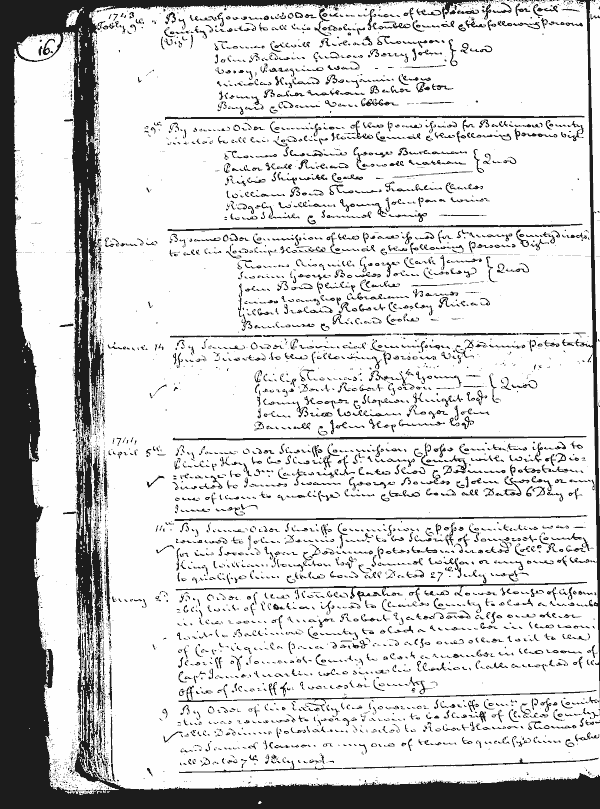 16.
1743
By the Governor's Order Commission of the peace issued for Cecil
County directed to all his Lordships Honble Council & the following persons
(Vizt)
Thomas Colvill Richard Thompson
John Baldwin Andrew Barry John
Veasy, Peregrine Ward
Quor
Nicholas Hyland Benjamin
Henry Baker Nathan Baker Peter
Bayard & Adam Vanbebber
29th By same Order Commission of the peace issued for Baltimore County
directed to all his Lordships Honble Council & the following persons Vizt
Thomas Sheredine George Buchanan
Parker Hall Richard Caswell Nathan
Quor
Rigbie Skipwith Coale
William Bond Thomas Franklin Charles
Ridgely William Young John Para
Smith & Samuel
Eodem die By same Order Commission of the peace issued for St Marys County directed
to all his Lordships Honble Council & the following persons Vizt
Thomas Aisquith George Clark James
Swann George Bowles John Chesley
Quor
John Bond Philip Clarke
James Waughop Abraham Barnes
Gilbert Ireland Robert Chesley Richard
Barnhouse & Richard Cooke
March 14 By Same Order Provincial Commission & Dedimus Potestatem
Issued directed to the following persons Vizt
Philip Thomas Benj. Young
George Dent Robert Gordon
Quor
Henry Hooper & Stephen Knight Esqr
John Brice William Roger John
Darnall & John Hepburn Esqr
1744
April 5th By Same Order Sheriffs Commission & Posse Comitatus issued to
Philip Key to be Sheriff of St Marys County with Writ of Dis-
charge to Cartwright late Sheriff & Dedimus potestatem
directed to James Swann George Bowles & John Chesley or any
one of them to qualify him & take bond all Dated 6 Day of
June next
14th By Same Order Sheriffs Commission & Posse Comitatus was
renewed to John Dennis Junr to be Sheriff of Somerset County
for his Second Year & Dedimus potestatem directed Collo Robert
King William Stoughton Esqr & Samuel Wilson or any one of them
to qualify him & take bond all Dated 27th July next
May 2d By Order of the Honble Speaker of the Lower House of Assem-
bly writ of Election issued to Charles County to elect a member
in the room of Major Robert Yates dec'd also one other
writ to Baltimore County to elect a member in the room
of Capt Aquila Paca dec'd and also one other writ to the
Sheriff of Somerset County to elect a member in the room of
Capt James Martin who since his Election hath accepted of the
office of Sheriff for Worcester County
9 By Order of his Excellency the Governor Sheriffs Comn & Posse Comita
was renewed to George Dent to be Sheriff of Charles County
with Dedimus potestatem directed to Robert Hanson Thomas
and Samuel Hanson or any one of them to qualify him & take
all Dated 7th July next